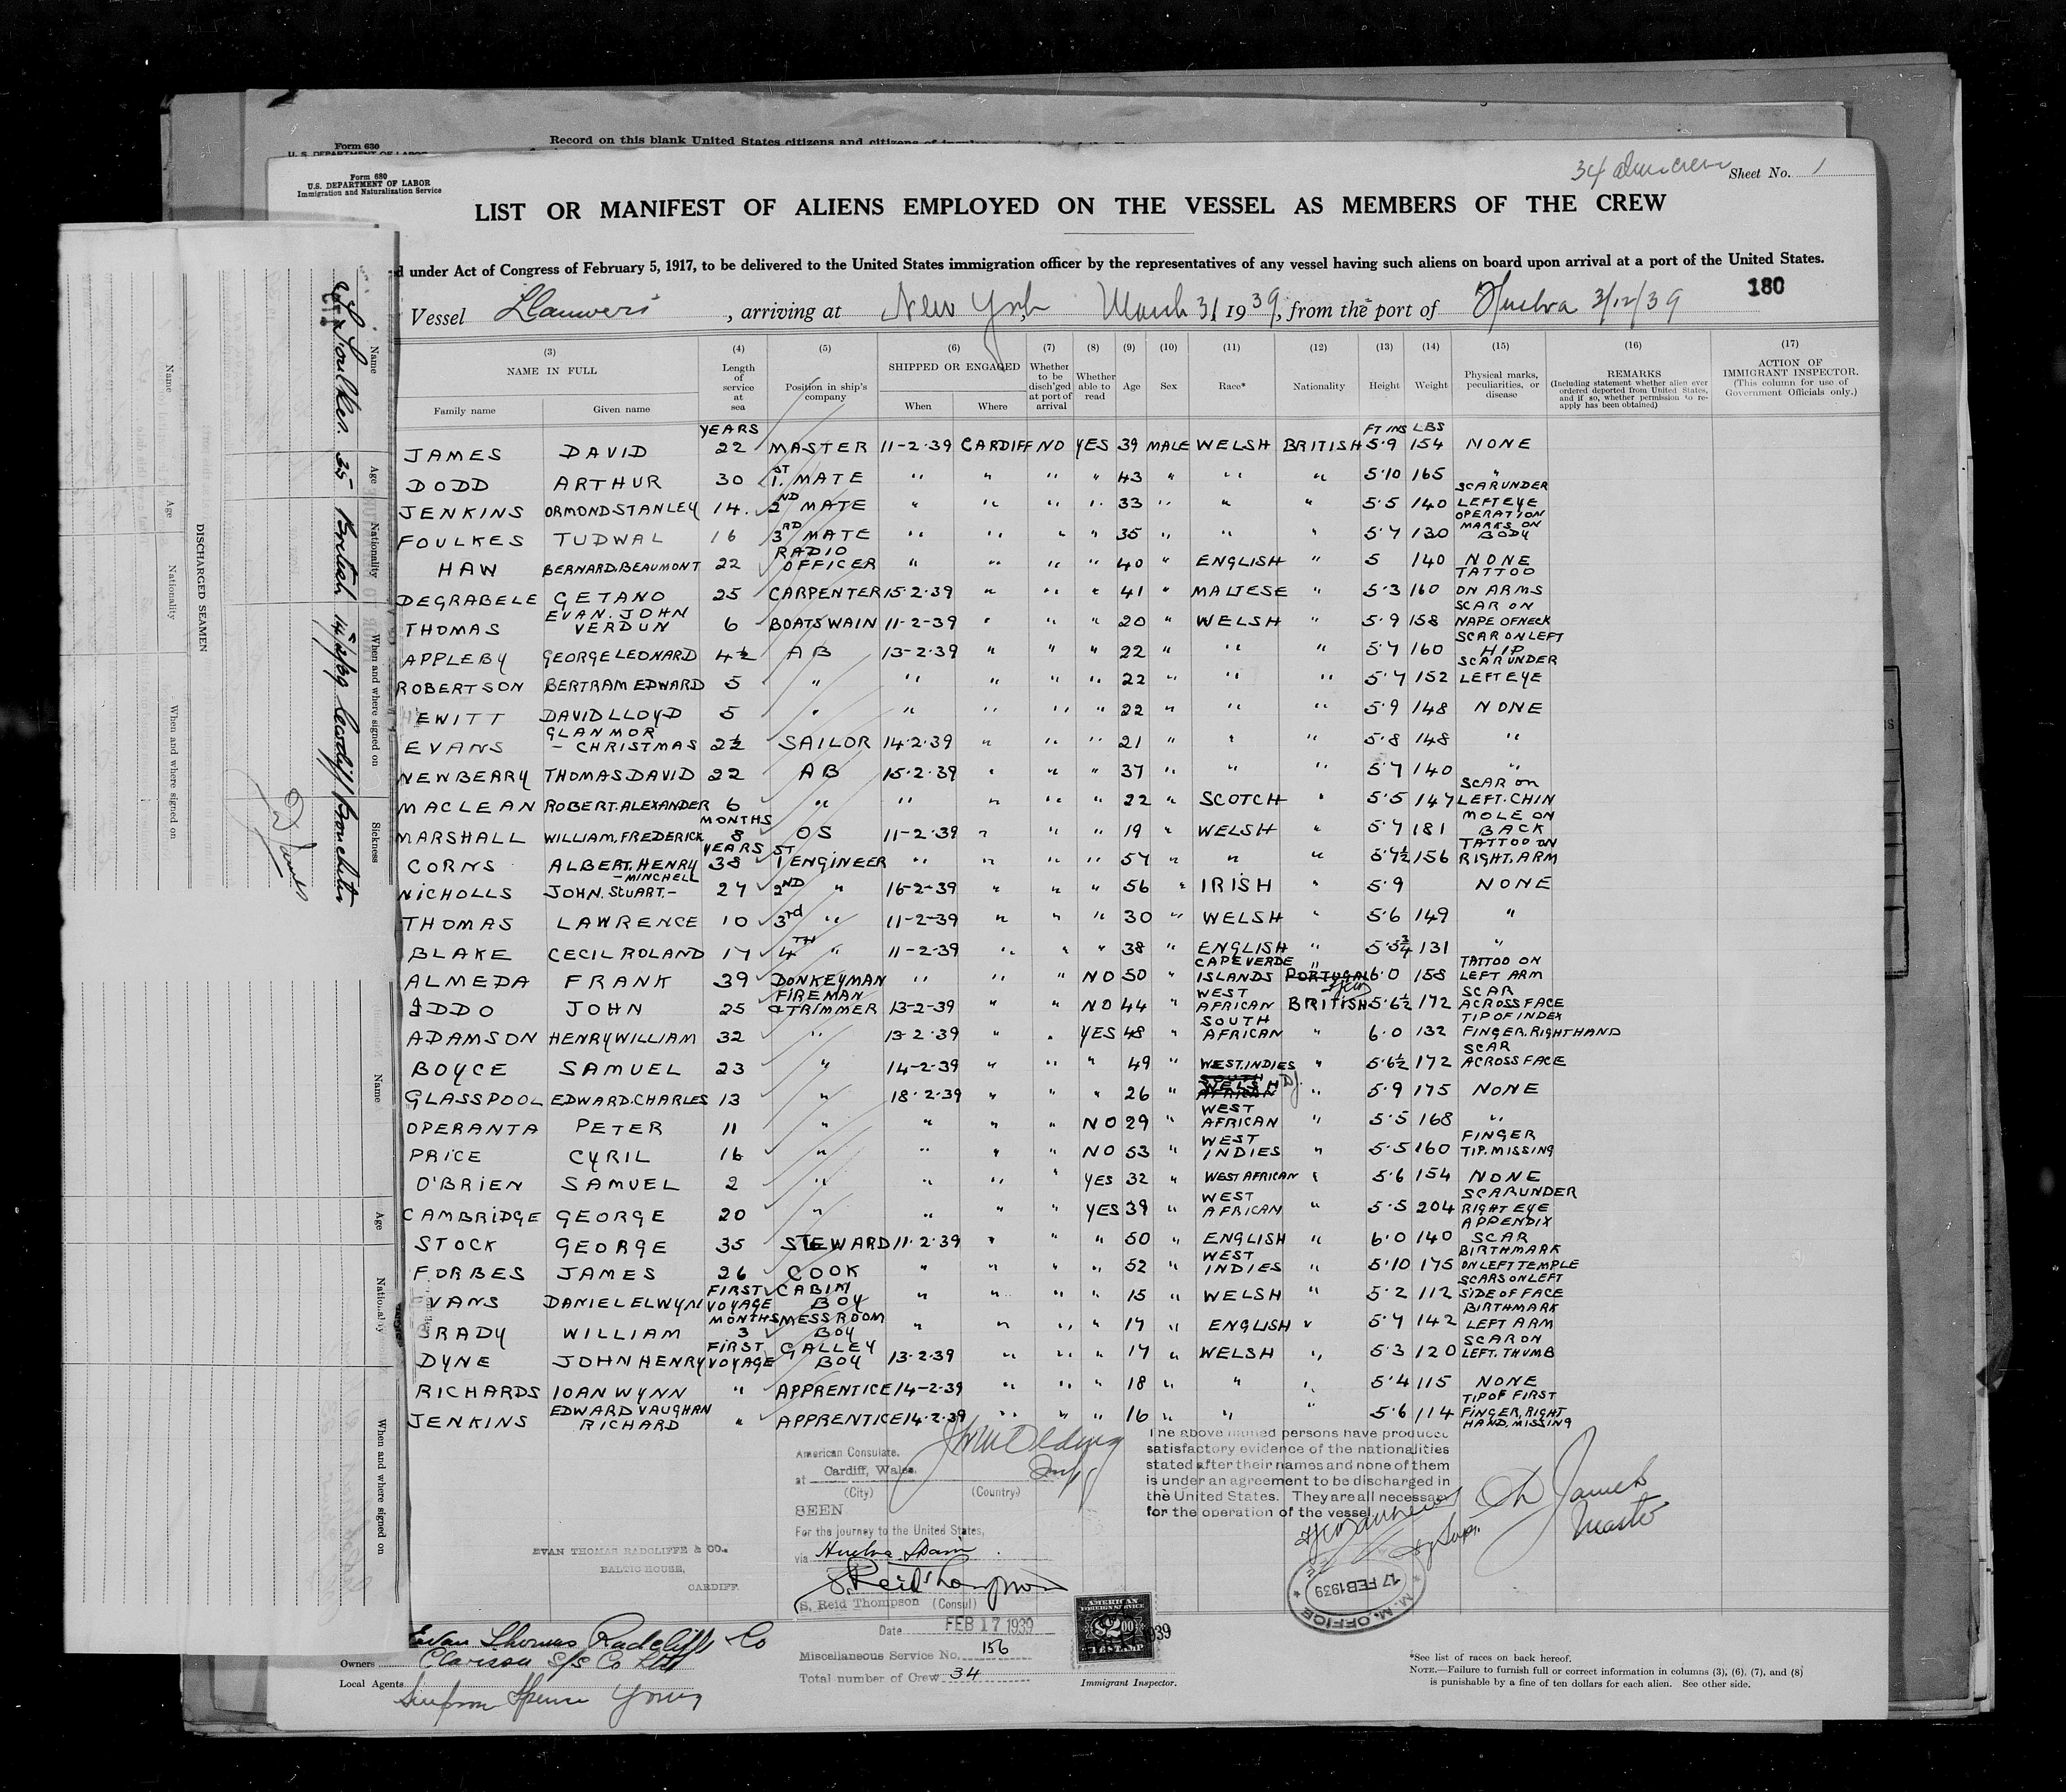 Form 630
U. S. DEPARTMENT OF LABOR
Record on this blank United States citizens and citizens of
Form 680
U.S. DEPARTMENT OF LABOR
Immigration and Naturalization Service
34 alien crew Sheet No. 1
LIST OR MANIFEST OF ALIENS EMPLOYED ON THE VESSEL AS MEMBERS OF THE CREW
d under Act of Congress of February 5, 1917, to be delivered to the United States immigration officer by the representatives of any vessel having such aliens on board upon arrival at a port of the United States.
180
Vessel Llanwern, arriving at New York, March 31 1939, from the port of Huelva 3/12/39
(3) (4) (5) (6) (7) (8) (9) (10) (11) (12) (13) (14) (15) (16) (17)
NAME IN FULL
Family name Given name
Length of service at sea
Position in ship's company
SHIPPED OR ENGAGED
When Where
Whether to be disch'ged at port of arrival
Whether able to read
Age Sex Race* Nationality Height Weight
Physical marks, peculiarities, or disease
REMARKS
(Including statement whether alien ever ordered deported from United States, and if so, whether permission to re-apply has been obtained)
ACTION OF IMMIGRANT INSPECTOR.
(This column for use of Government Officials only.)
YEARS FT INS LBS
JAMES DAVID 22 MASTER 11-2-39 CARDIFF NO YES 39 MALE WELSH BRITISH 5·9 154 NONE
DODD ARTHUR 30 1ST MATE " " " " 43 " " " 5·10 165 "
JENKINS ORMOND STANLEY 14. 2ND MATE " " " " 33 " " " 5·5 140 SCAR UNDER LEFT EYE
FOULKES TUDWAL 16 3RD MATE " " " " 35 " " " 5·7 130 OPERATION MARKS ON BODY
HAW BERNARD.BEAUMONT 22 RADIO OFFICER " " " " 40 " ENGLISH " 5 140 NONE
DEGRABELE GETANO 25 CARPENTER 15·2·39 " " " 41 " MALTESE " 5·3 160 TATTOO ON ARMS
THOMAS EVAN. JOHN VERDUN 6 BOATSWAIN 11-2-39 " " " 20 " WELSH " 5·9 158 SCAR ON NAPE OF NECK
APPLEBY GEORGE LEONARD 4½ AB 13-2-39 " " " 22 " " " 5·7 160 SCAR ON LEFT HIP
ROBERTSON BERTRAM EDWARD 5 " " " " " 22 " " " 5·7 152 SCAR UNDER LEFT EYE
HEWITT DAVID LLOYD 5 " " " " " 22 " " " 5·9 148 NONE
EVANS GLANMOR - CHRISTMAS 2½ SAILOR 14·2·39 " " " 21 " " " 5·8 148 "
NEWBEARY THOMAS DAVID 22 AB 15·2·39 " " " 37 " " " 5·7 140 "
MACLEAN ROBERT. ALEXANDER 6 " " " " " 22 " SCOTCH " 5·5 147 SCAR on LEFT. CHIN
MARSHALL WILLIAM, FREDERICK MONTHS 8 OS 11-2-39 " " " 19 " WELSH " 5·7 181 MOLE ON BACK
CORNS ALBERT. HENRY YEARS 38 1ST ENGINEER " " " " 57 " " " 5·7½ 156 TATTOO ON RIGHT. ARM
NICHOLLS JOHN. STUART.- -MINCHELL 27 2ND " 16-2-39 " " " 56 " IRISH " 5·9 NONE
THOMAS LAWRENCE 10 3rd " 11-2-39 " " " 30 " WELSH " 5·6 149 "
BLAKE CECIL ROLAND 17 4TH " 11-2-39 " " " 38 " ENGLISH " 5·5¾ 131 "
ALMEDA FRANK 39 DONKEYMAN " " " NO 50 " CAPE VERDE ISLANDS PORTUGAL 6·0 158 TATTOO ON LEFT ARM
IDDO JOHN 25 FIREMAN & TRIMMER 13-2-39 " " NO 44 " WEST AFRICAN BRITISH 5·6½ 172 SCAR ACROSS FACE
ADAMSON HENRY WILLIAM 32 " 13·2·39 " " YES 48 " SOUTH AFRICAN " 6·0 132 TIP OF INDEX FINGER. RIGHT HAND
BOYCE SAMUEL 23 " 14-2-39 " " " 49 " WEST. INDIES " 5·6½ 172 SCAR ACROSS FACE
GLASSPOOL EDWARD. CHARLES 13 " 18·2·39 " " " 26 " WELSH SOUTH AFRICAN DJ. " 5·9 175 NONE
OPERANTA PETER 11 " " " " NO 29 " WEST AFRICAN " 5·5 168 "
PRICE CYRIL 16 " " " " NO 53 " WEST INDIES " 5·5 160 FINGER TIP. MISSING
O'BRIEN SAMUEL 2 " " " " YES 32 " WEST AFRICAN " 5·6 154 NONE
CAMBRIDGE GEORGE 20 " " " " YES 39 " WEST AFRICAN " 5·5 204 SCAR UNDER RIGHT EYE
STOCK GEORGE 35 STEWARD 11·2·39 " " " 50 " ENGLISH " 6·0 140 APPENDIX SCAR
FORBES JAMES 26 COOK " " " " 52 " WEST INDIES " 5·10 175 BIRTHMARK ON LEFT TEMPLE
EVANS DANIEL ELWYN FIRST VOYAGE CABIN BOY " " " " 15 " WELSH " 5·2 112 SCARS ON LEFT SIDE OF FACE
BRADY WILLIAM MONTHS 3 MESS ROOM BOY " " " " 17 " ENGLISH " 5·7 142 BIRTHMARK LEFT ARM
DYNE JOHN HENRY FIRST VOYAGE GALLEY BOY 13·2·39 " " " 17 " WELSH " 5·3 120 SCAR ON LEFT. THUMB
RICHARDS IOAN WYNN " APPRENTICE 14-2-39 " " " 18 " " " 5·4 115 NONE
JENKINS EDWARD VAUGHAN RICHARD " APPRENTICE 14·2·39 " " " 16 " " " 5·6 114 TIP OF FIRST FINGER, RIGHT HAND, MISSING
American Consulate,
at Cardiff, Wales.
(City) (Country)
SEEN
For the journey to the United States,
via Huelva Spain.
S. Reid Thompson
S. Reid Thompson (Consul)
Date FEB 17 1939
Miscellaneous Service No. 156
Total number of Crew 34
The above named persons have produced
satisfactory evidence of the nationalities
stated after their names and none of them
is under an agreement to be discharged in
the United States. They are all necessary
for the operation of the vessel.
D James
Master
M. M. OFFICE
17 FEB 1939
EVAN THOMAS RADCLIFFE & CO.,
BALTIC HOUSE,
CARDIFF.
AMERICAN
FOREIGN SERVICE
$2.00
FEE STAMP
1939
Immigrant Inspector.
Owners Evan Thomas Radcliffe & Co
Clarissa S/S Co Ltd
Local Agents Simpson Spence Young
*See list of races on back hereof.
NOTE.—Failure to furnish full or correct information in columns (3), (6), (7), and (8)
is punishable by a fine of ten dollars for each alien. See other side.
DISCHARGED SEAMEN
Name Age Nationality When and where signed on Sickness
T Foulkes. 35 British 14/2/39 Cardiff Bronchitis
D James
Name Age Nationality When and where signed on
Name Age Nationality When and where signed on